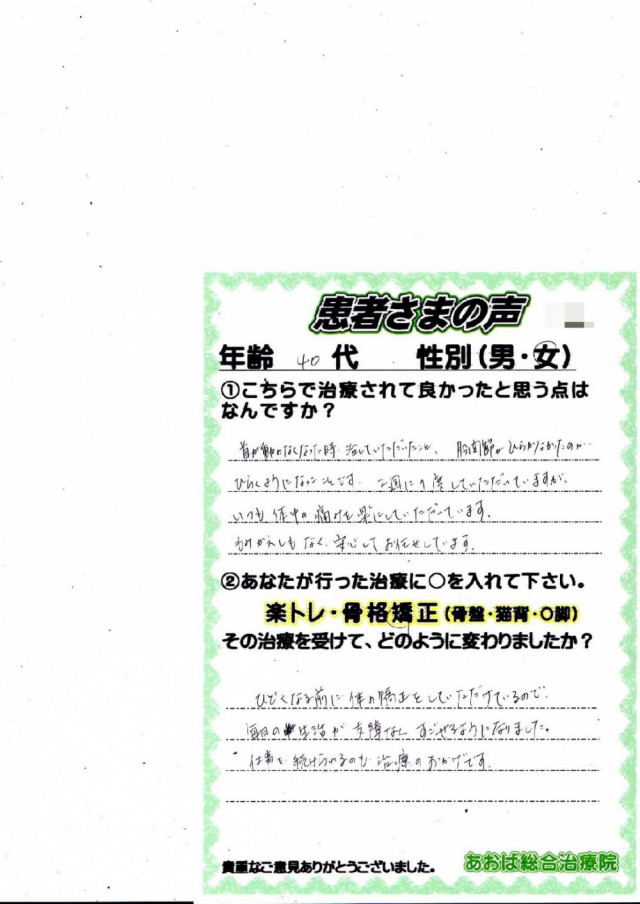 患者さまの声
年齢 40 代 性別(男・女)
①こちらで治療されて良かったと思う点は
なんですか？
首が動かなくなった時、治していただいたこと、股関節がひらかなかったのが
ひらくようになったことです。2週に1度していただいていますが、
いつも体中の痛みを楽にしていただいています。
もみかえしもなく、安心してお任せしています。
②あなたが行った治療に○を入れて下さい。
楽トレ・骨格矯正(骨盤・猫背・O脚)
その治療を受けて、どのように変わりましたか？
ひどくなる前に体の矯正をしていただけているので、
毎日の生活が支障なくすごせるようになりました。
仕事を続けられるのも治療のおかげです。
貴重なご意見ありがとうございました。
あおば総合治療院